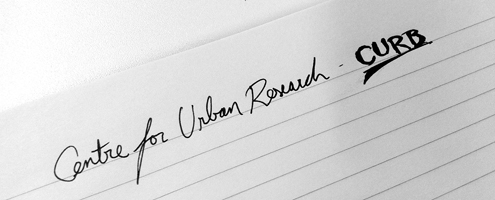 Centre for Urban Research - CURB